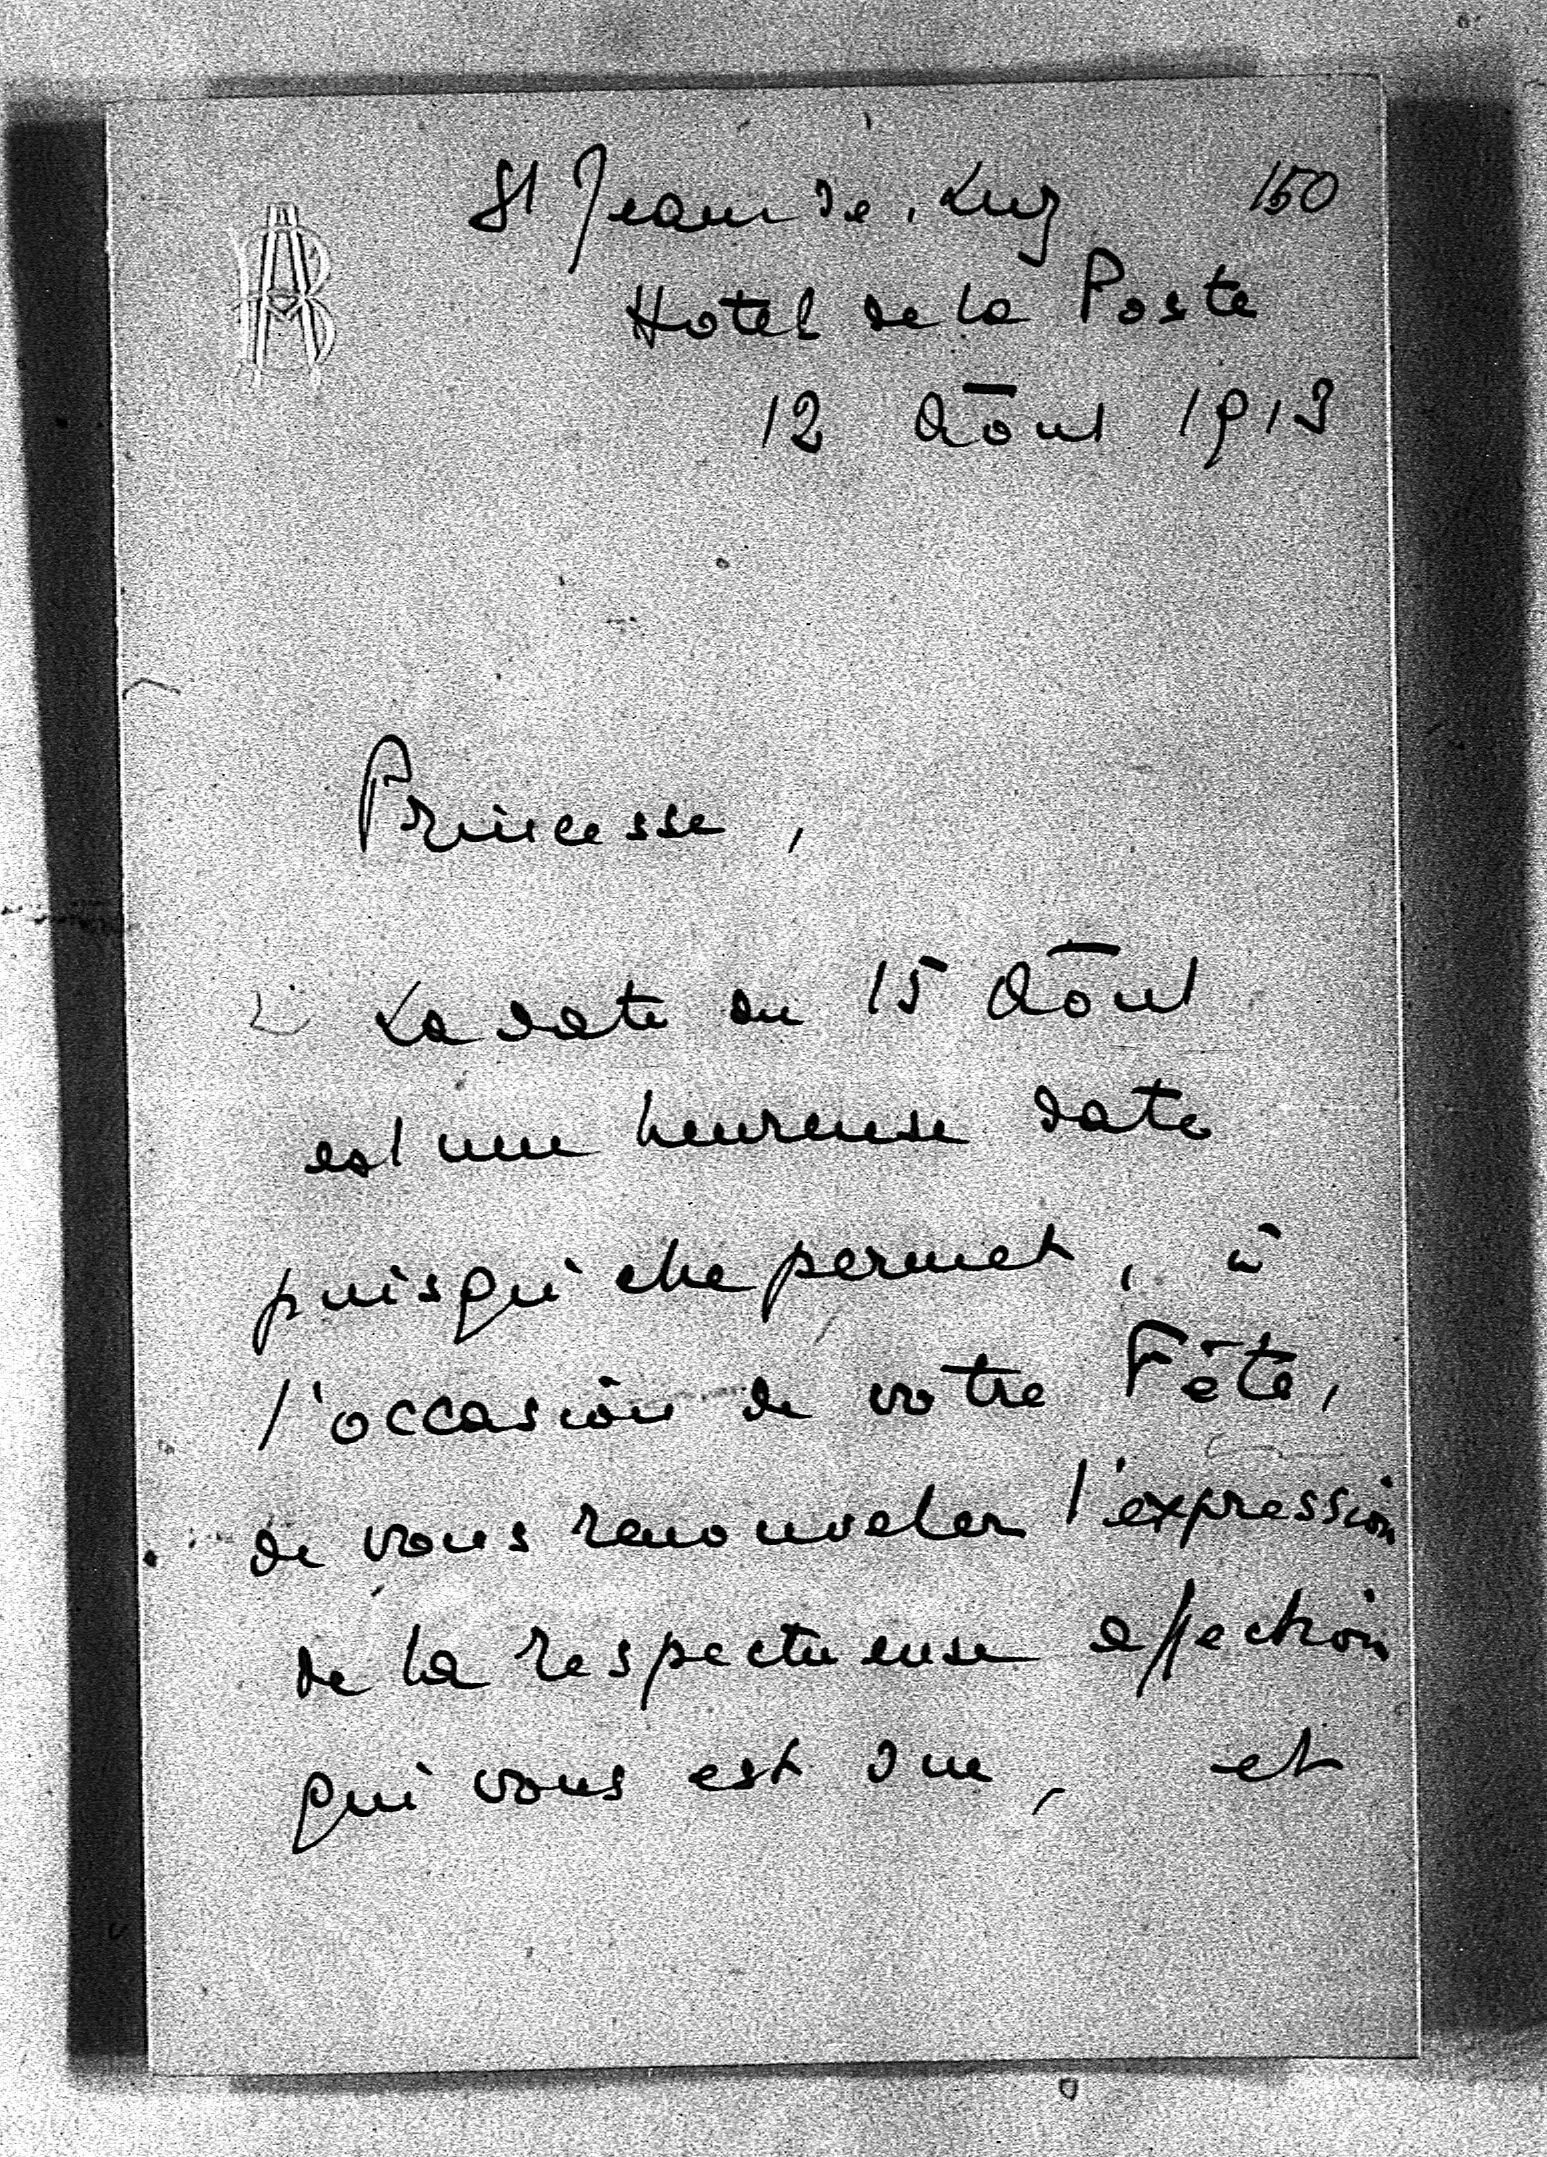 St Jean de Luz 150
Hotel de la Poste
12 Aôut 1913
Princesse,
La date du 15 Aôut
est une heureuse date
puisqu'elle permet, à
l'occasion de votre Fête,
de vous renouveler l'expression
de la respectueuse affection
qui vous est due, et